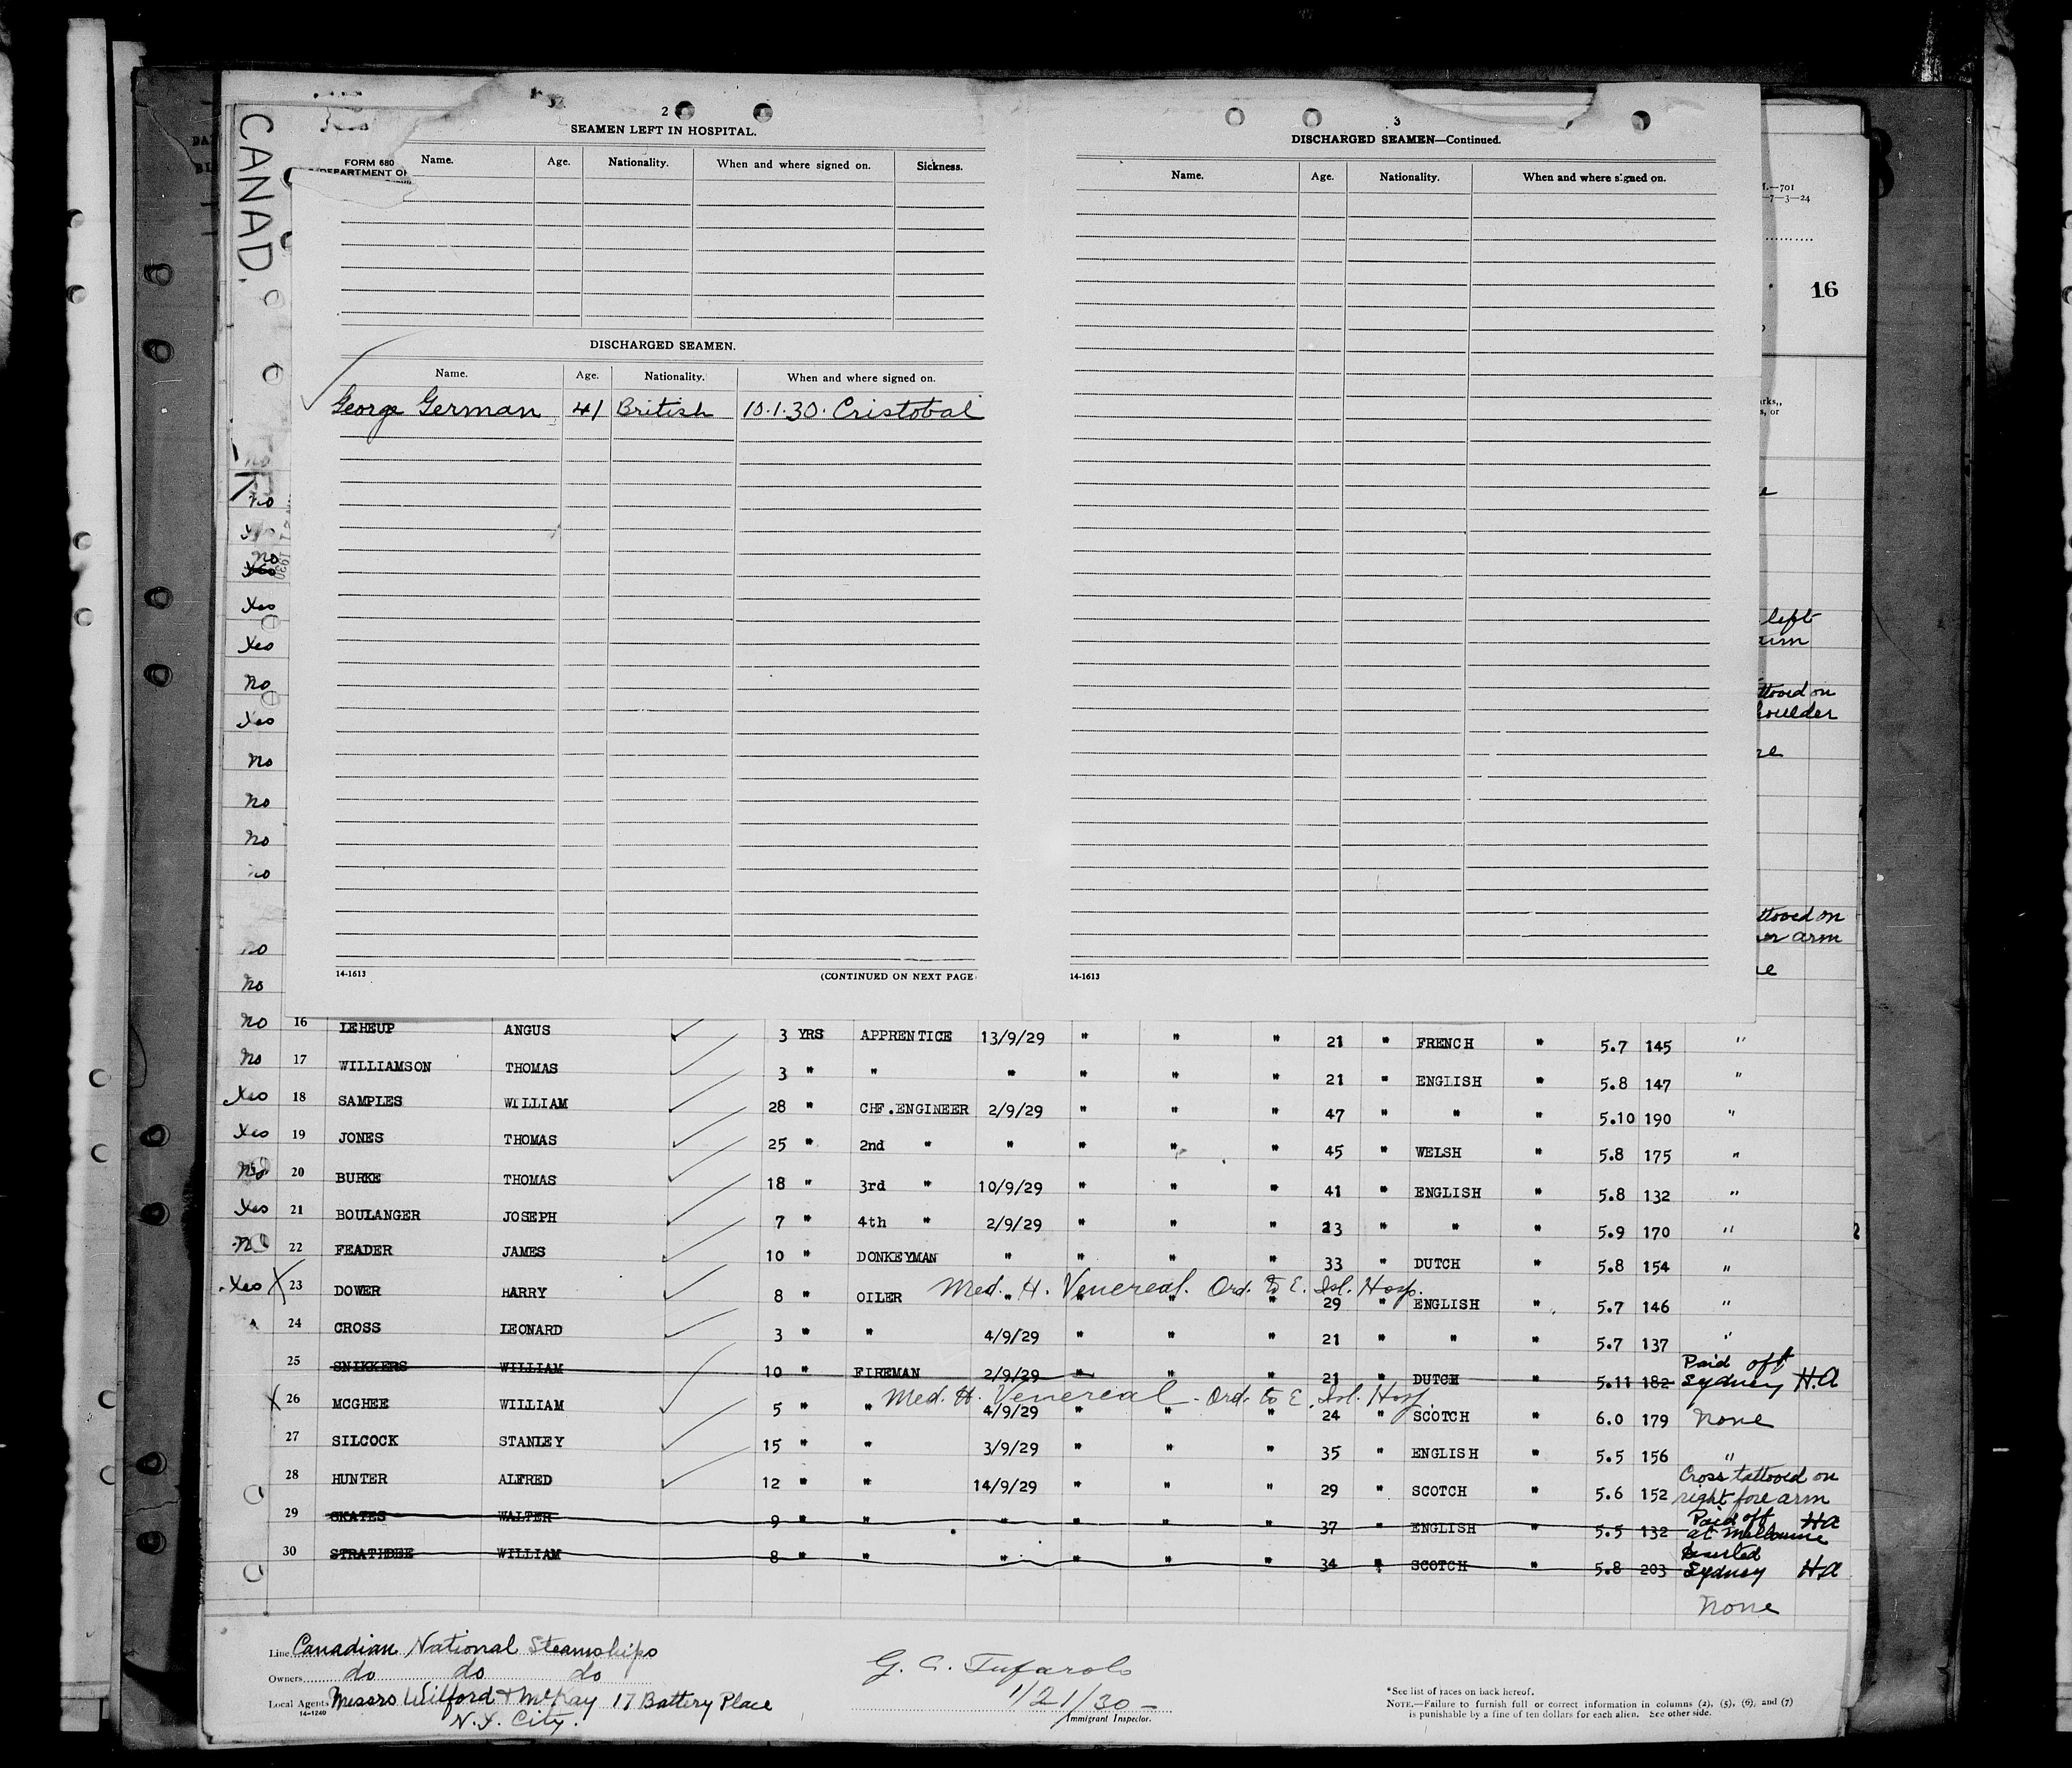 CANAD.
2
SEAMEN LEFT IN HOSPITAL.
FORM 680
DEPARTMENT OF
Name. Age. Nationality. When and where signed on. Sickness.
DISCHARGED SEAMEN.
Name. Age. Nationality. When and where signed on.
George German 41 British 10.1.30. Cristobal
14-1613 (CONTINUED ON NEXT PAGE
3
DISCHARGED SEAMEN—Continued.
Name. Age. Nationality. When and where signed on.
14-1613
—701
—7—3—24
16
rks,,
s, or
left
arm
ttooed on
houlder
ne
ttooed on
er arm
ne
no
no
no
Yes
Yes
Yes
no
Yes
no
no
no
no
no
no
no 16 LEHEUP ANGUS 3 YRS APPRENTICE 13/9/29 " " " 21 " FRENCH " 5.7 145 "
no 17 WILLIAMSON THOMAS 3 " " " " " " 21 " ENGLISH " 5.8 147 "
Yes 18 SAMPLES WILLIAM 28 " CHF.ENGINEER 2/9/29 " " " 47 " " " 5.10 190 "
Yes 19 JONES THOMAS 25 " 2nd " " " " " 45 " WELSH " 5.8 175 "
no 20 BURKE THOMAS 18 " 3rd " 10/9/29 " " " 41 " ENGLISH " 5.8 132 "
Yes 21 BOULANGER JOSEPH 7 " 4th " 2/9/29 " " " 23 " " " 5.9 170 "
no 22 FEADER JAMES 10 " DONKEYMAN " " " " 33 " DUTCH " 5.8 154 "
Med. H. Venereal. Ord. to E. Isl. Hosp.
Yes X 23 DOWER HARRY 8 " OILER " " " " 29 " ENGLISH " 5.7 146 "
24 CROSS LEONARD 3 " " 4/9/29 " " " 21 " " " 5.7 137 "
25 SNIKKERS WILLIAM 10 " FIREMAN 2/9/29 " " " 21 " DUTCH " 5.11 182 Paid off
Sydney H.A
Med. H. Venereal - Ord. to E. Isl. Hosp.
X 26 MCGHEE WILLIAM 5 " " 4/9/29 " " " 24 " SCOTCH " 6.0 179 None
27 SILCOCK STANLEY 15 " " 3/9/29 " " " 35 " ENGLISH " 5.5 156 "
28 HUNTER ALFRED 12 " " 14/9/29 " " " 29 " SCOTCH " 5.6 152 Cross tattooed on
right fore arm
29 SKATES WALTER 9 " " " " " " 37 " ENGLISH " 5.5 132 Paid off HA
at Melbourne
30 STRATHDEE WILLIAM 8 " " " " " " 34 " SCOTCH " 5.8 203 Deserted
Sydney HA
None
Line Canadian National Steamships
Owners do do do
Local Agents Messrs Wilford & McKay 17 Battery Place
14-1240
N.Y. City.
G. C. Tufarolo
1/21/30 -
Immigrant Inspector.
*See list of races on back hereof.
NOTE.—Failure to furnish full or correct information in columns (2), (5), (6), and (7)
is punishable by a fine of ten dollars for each alien. See other side.